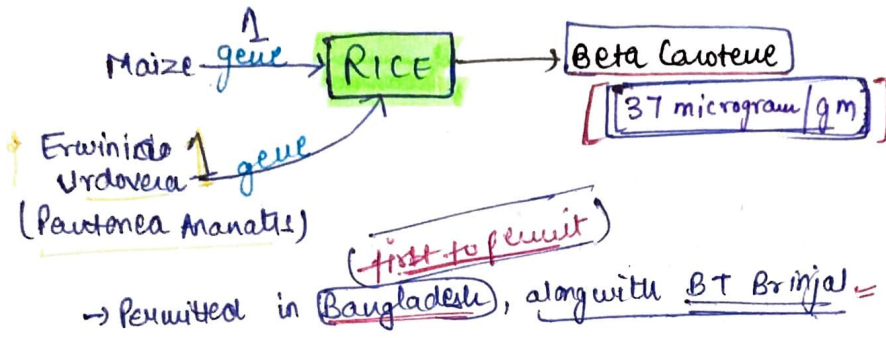 1
Maize gene → RICE → Beta Carotene
[37 microgram/gm]
Erwinia 1 gene
Urdovera
(Pantonea Ananatis)
(first to permit)
→ Permitted in Bangladesh, alongwith BT Brinjal =